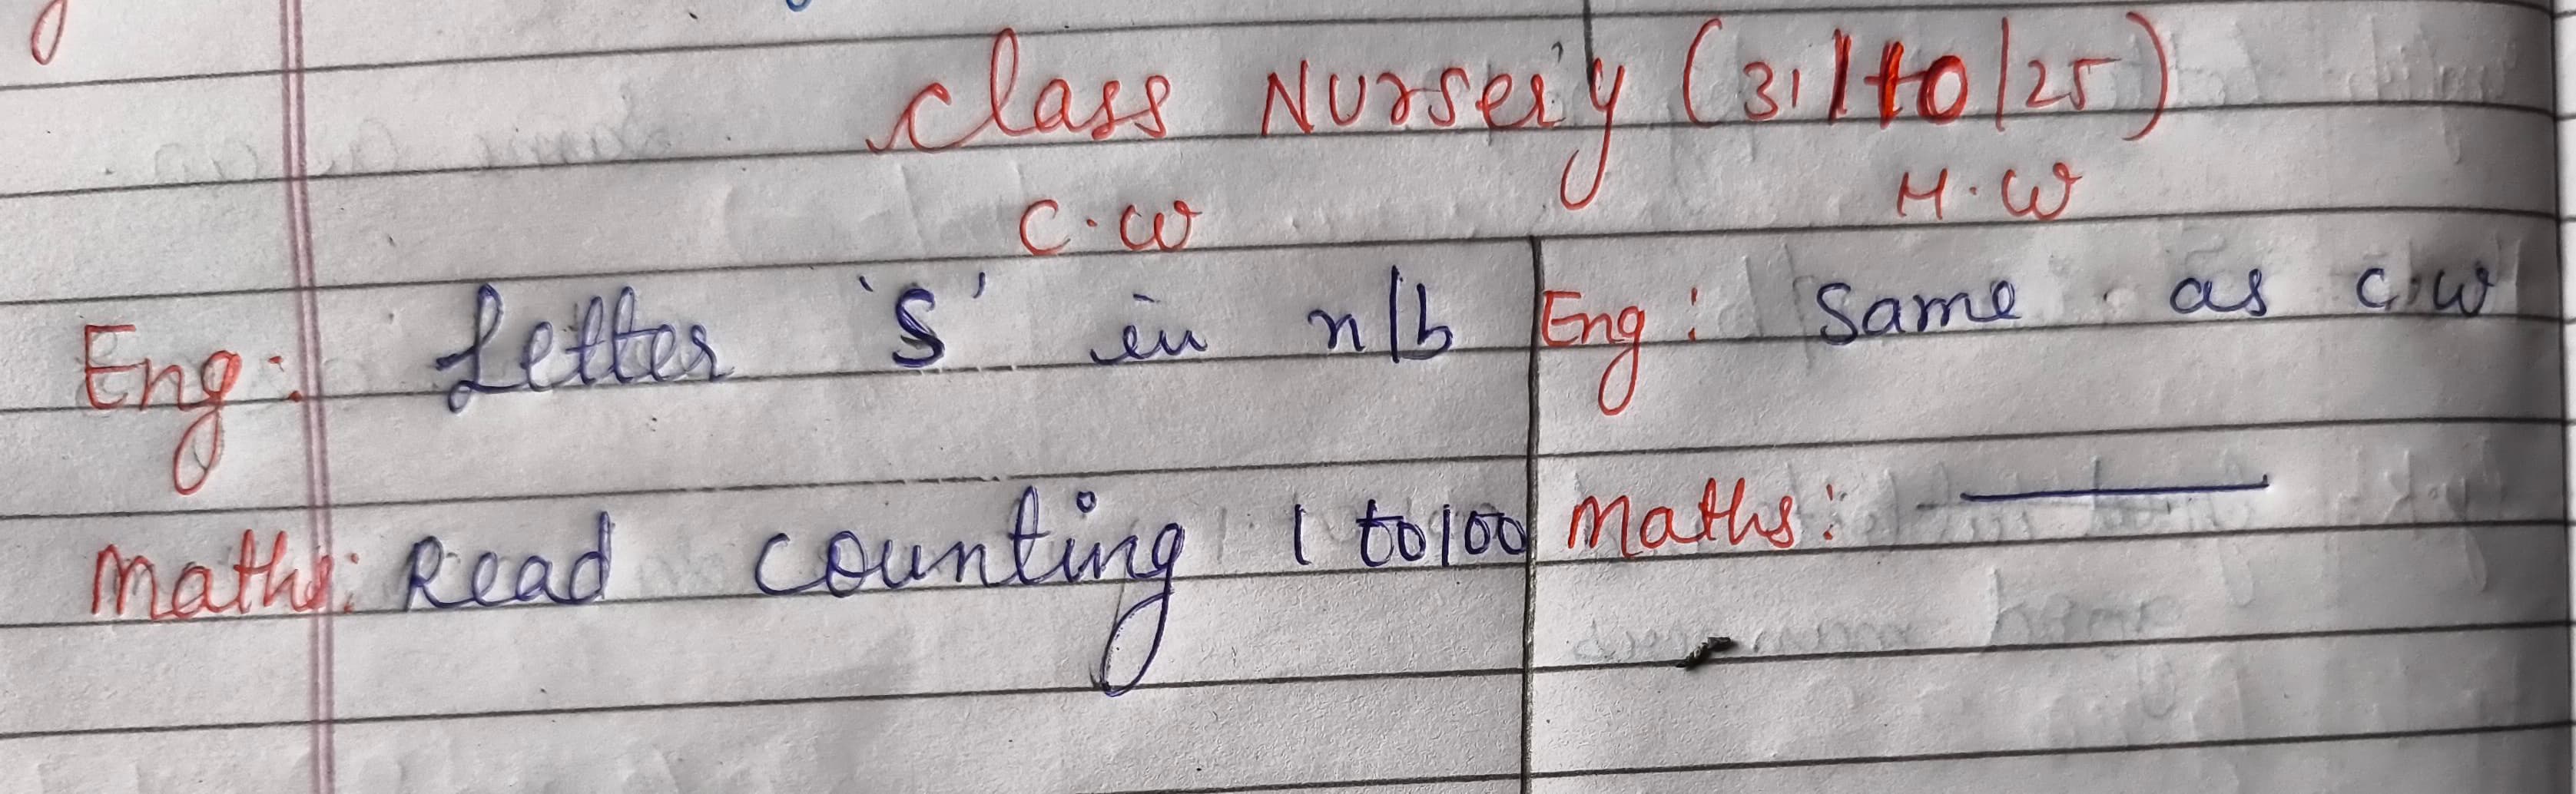 Class Nursery (31/10/25)
C.W
H.W
Eng: Letter 'S' in n/b
Eng: Same as c.w
Maths: Read counting 1 to 100
Maths: ———